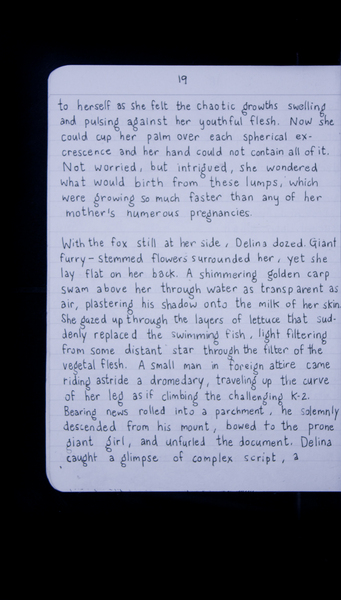 19
to herself as she felt the chaotic growths swelling
and pulsing against her youthful flesh. Now she
could cup her palm over each spherical ex-
crescence and her hand could not contain all of it.
Not worried, but intrigued, she wondered
what would birth from these lumps, which
were growing so much faster than any of her
mother's numerous pregnancies.
With the fox still at her side, Delina dozed. Giant
furry-stemmed flowers surrounded her, yet she
lay flat on her back. A shimmering golden carp
swam above her through water as transparent as
air, plastering his shadow onto the milk of her skin.
She gazed up through the layers of lettuce that sud-
denly replaced the swimming fish, light filtering
from some distant star through the filter of the
vegetal flesh. A small man in foreign attire came
riding astride a dromedary, traveling up the curve
of her leg as if climbing the challenging K-2.
Bearing news rolled into a parchment, he solemnly
descended from his mount, bowed to the prone
giant girl, and unfurled the document. Delina
caught a glimpse of complex script, a